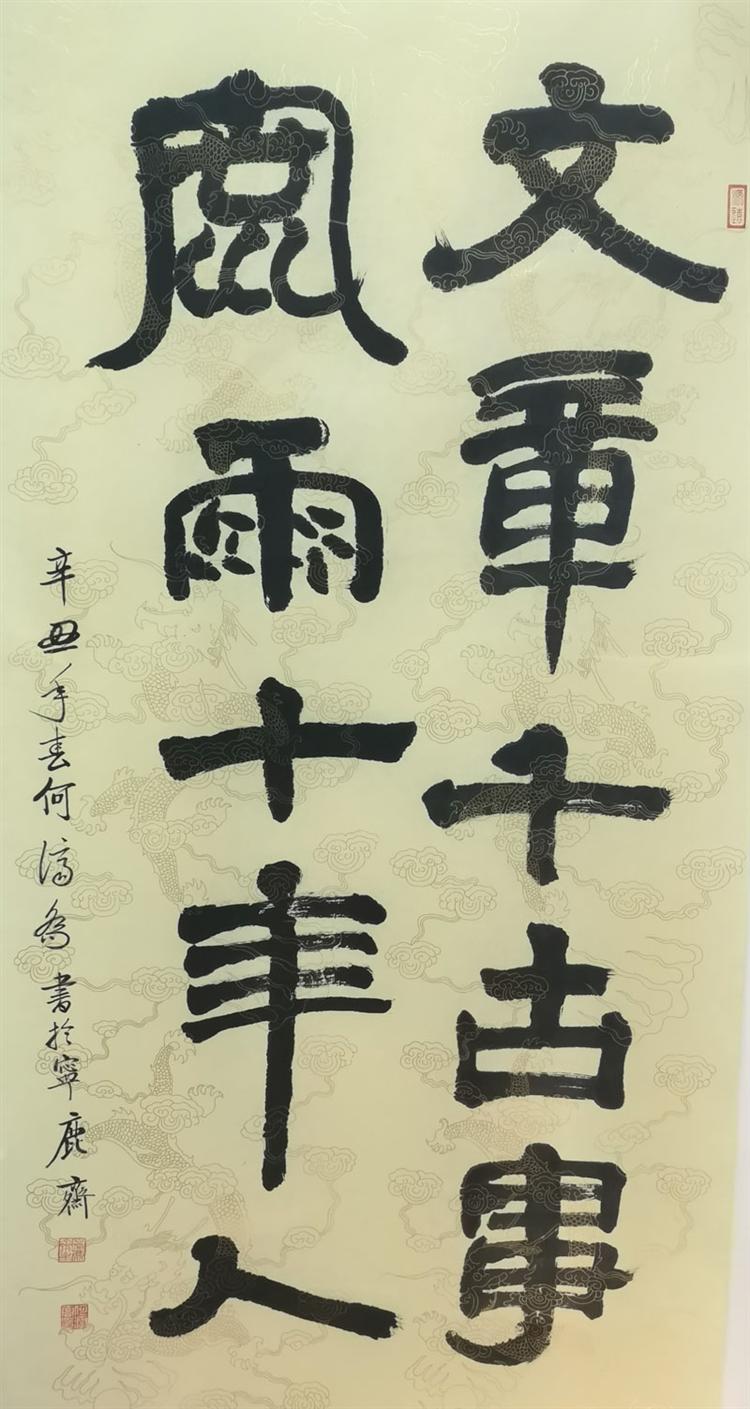 文章千古事
風雨十年人
辛丑年春何濤為書於寧鹿齋